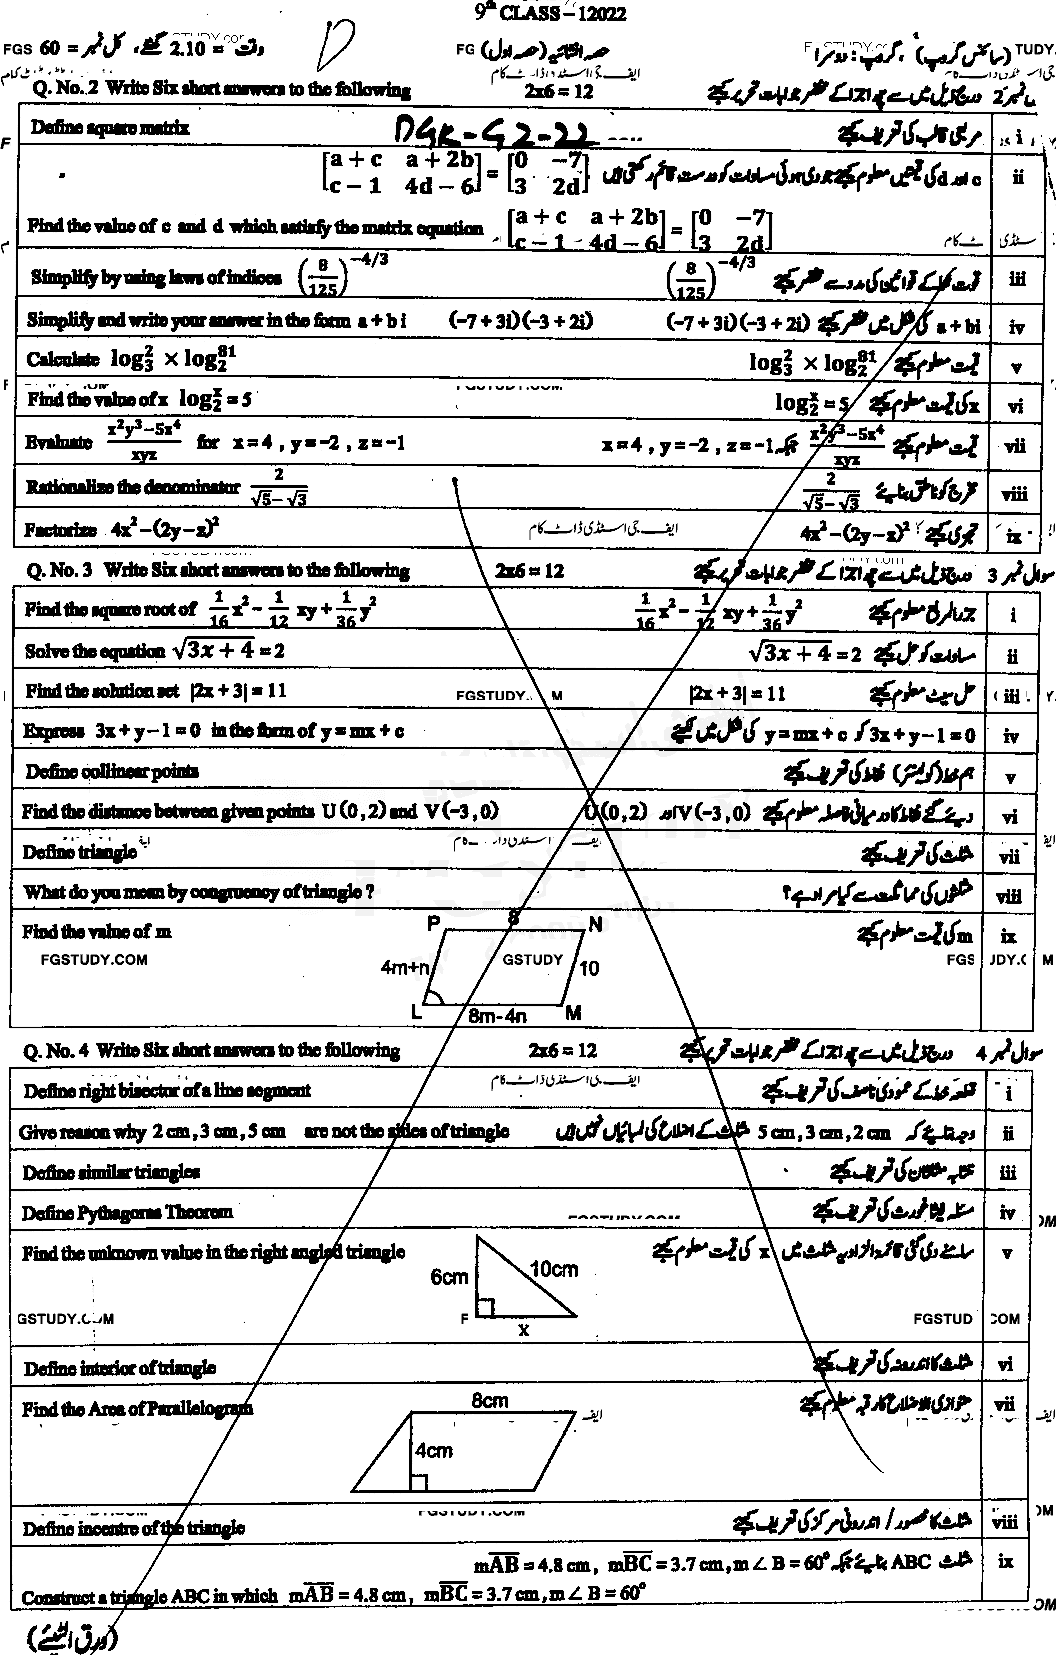 9th CLASS – 12022
FGS 60 = کل نمبر ، گھنٹے 2.10 = وقت FG حصہ انشائیہ (حصہ اول) (سائنس گروپ) ، گروپ : دوسرا TUDY.
Q. No. 2 Write Six short answers to the following 2x6 = 12 درج ذیل میں سے چھ اجزا کے مختصر جوابات تحریر کیجئے
Define square matrix DGK-G2-22 مربعی قالب کی تعریف کیجئے i
[a + c a + 2b; c − 1 4d − 6] = [0 −7; 3 2d] c اور d کی قیمتیں معلوم کیجئے جو دی ہوئی مساوات کو درست قائم رکھتی ہیں ii
Find the value of c and d which satisfy the matrix equation [a + c a + 2b; c − 1 4d − 6] = [0 −7; 3 2d]
Simplify by using laws of indices (8/125)^−4/3 (8/125)^−4/3 قوت نما کے قوانین کی مدد سے مختصر کیجئے iii
Simplify and write your answer in the form a + b i (−7 + 3i)(−3 + 2i) (−7 + 3i)(−3 + 2i) a + bi کی شکل میں مختصر کیجئے iv
Calculate log₃² × log₂⁸¹ log₃² × log₂⁸¹ قیمت معلوم کیجئے v
Find the value of x log₂ˣ = 5 log₂ˣ = 5 x کی قیمت معلوم کیجئے vi
Evaluate x²y³−5z⁴/xyz for x = 4 , y = −2 , z = −1 x = 4 , y = −2 , z = −1 جبکہ x²y³−5z⁴/xyz قیمت معلوم کیجئے vii
Rationalize the denominator 2/√5−√3 2/√5−√3 مخرج کو ناطق بنائیے viii
Factorize 4x² − (2y − z)² ایف جی اسٹڈی ڈاٹ کام 4x² − (2y − z)² تجزی کیجئے ix
Q. No. 3 Write Six short answers to the following 2x6 = 12 درج ذیل میں سے چھ اجزا کے مختصر جوابات تحریر کیجئے سوال نمبر 3
Find the square root of 1/16 x² − 1/12 xy + 1/36 y² 1/16 x² − 1/12 xy + 1/36 y² جذرالمربع معلوم کیجئے i
Solve the equation √3x + 4 = 2 √3x + 4 = 2 مساوات کو حل کیجئے ii
Find the solution set |2x + 3| = 11 FGSTUDY. M |2x + 3| = 11 حل سیٹ معلوم کیجئے iii
Express 3x + y − 1 = 0 in the form of y = mx + c 3x + y − 1 = 0 کو y = mx + c کی شکل میں لکھئے iv
Define collinear points ہم خط (کولینئر) نقاط کی تعریف کیجئے v
Find the distance between given points U (0 , 2) and V (−3 , 0) U (0 , 2) اور V (−3 , 0) دیے گئے نقاط کا درمیانی فاصلہ معلوم کیجئے vi
Define triangle مثلث کی تعریف کیجئے vii
What do you mean by congruency of triangle ? مثلثوں کی مماثلت سے کیا مراد ہے؟ viii
Find the value of m P 8 N m کی قیمت معلوم کیجئے ix
FGSTUDY.COM 4m+n GSTUDY 10 FGS
L 8m-4n M
Q. No. 4 Write Six short answers to the following 2x6 = 12 درج ذیل میں سے چھ اجزا کے مختصر جوابات تحریر کیجئے سوال نمبر 4
Define right bisector of a line segment قطعہ خط کے عمودی ناصف کی تعریف کیجئے i
Give reason why 2 cm , 3 cm , 5 cm are not the sides of triangle وجہ بتایئے کہ 2 cm , 3 cm , 5 cm مثلث کے اضلاع کی لمبائیاں نہیں ہیں ii
Define similar triangles متشابہ مثلثان کی تعریف کیجئے iii
Define Pythagoras Theorem مسئلہ فیثا غورث کی تعریف کیجئے iv
Find the unknown value in the right angled triangle سامنے دی گئی قائمۃ الزاویہ مثلث میں x کی قیمت معلوم کیجئے v
6cm 10cm
GSTUDY. M F x FGSTUD COM
Define interior of triangle مثلث کا اندرونہ کی تعریف کیجئے vi
Find the Area of Parallelogram 8cm متوازی الاضلاع کا رقبہ معلوم کیجئے vii
4cm
Define incentre of the triangle مثلث کا محصور / اندرونی مرکز کی تعریف کیجئے viii
mAB = 4.8 cm , mBC = 3.7 cm , m ∠ B = 60° مثلث ABC بنایئے جبکہ ix
Construct a triangle ABC in which mAB = 4.8 cm , mBC = 3.7 cm , m ∠ B = 60°
(ورق الٹیئے)